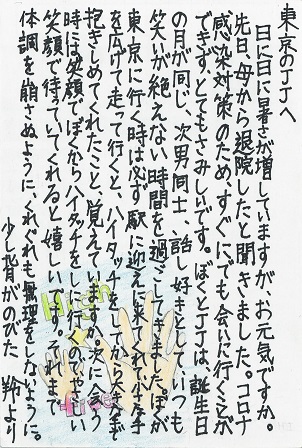 東京のJJへ
日に日に暑さが増していますが、お元気ですか。
先日、母から退院したと聞きました。コロナ
感染対策のため、すぐにでも会いに行くことが
できず、とてもさみしいです。ぼくとJJは、誕生日
の月が同じ、次男同士、話し好きとして、いつも
笑いが絶えない時間を過ごしてきましたね。ぼくが
東京に行く時は必ず駅に迎えに来てくれ、小さな手
を広げて走って行くと、ハイタッチをしてから大きな手で
抱きしめてくれたこと、覚えていますか。次に会う
時には笑顔でぼくからハイタッチをしに行くのでやさしい
笑顔で待っていてくれると嬉しいです。それまで
体調を崩さぬように、くれぐれも無理をしないように。
少し背がのびた
より
High
Five